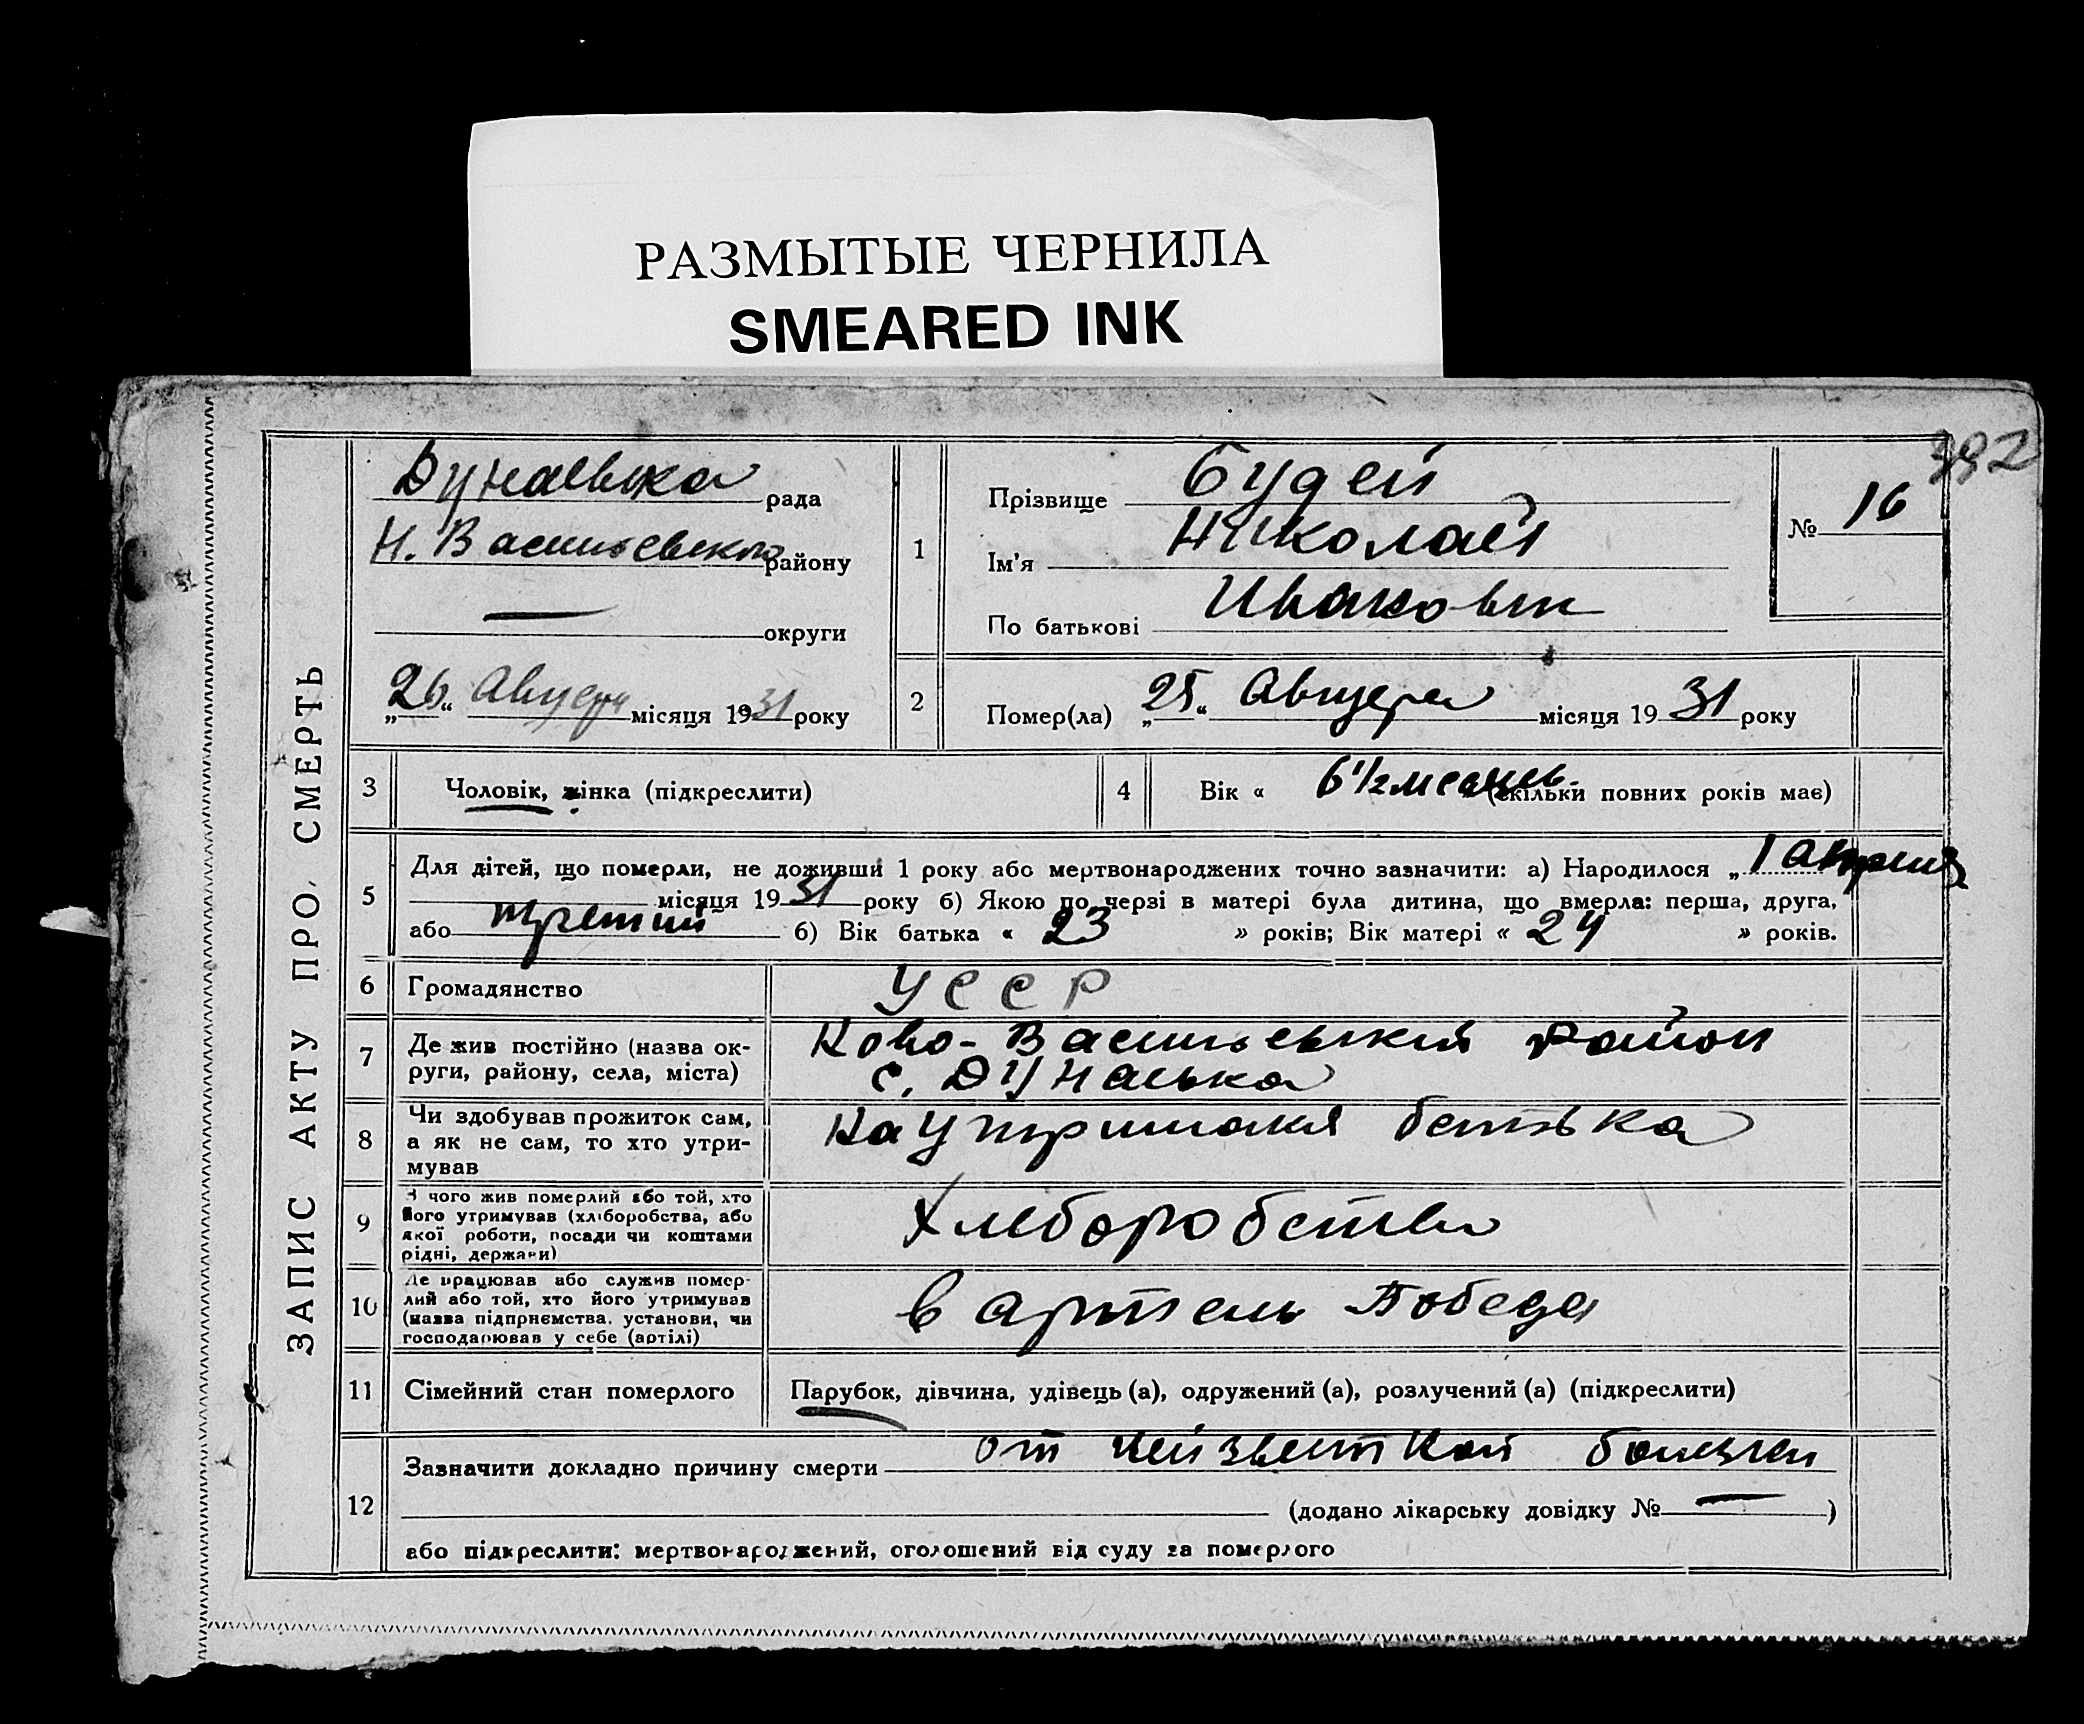 РАЗМЫТЫЕ ЧЕРНИЛА
SMEARED INK
392
ЗАПИС АКТУ ПРО СМЕРТЬ
Дунаевка рада
Н. Васильевского району
— округи
„26“ Августа місяця 1931 року
1
Прізвище Будей
Ім'я Николай
По батькові Иванович
№ 16
2
Помер(ла) „25“ Августа місяця 1931 року
3 Чоловік, жінка (підкреслити)
4 Вік « 6 1/2 месяцев (скільки повних років має)
5
Для дітей, що померли, не доживши 1 року або мертвонароджених точно зазначити: а) Народилося „ 1 апреля
місяця 1931 року б) Якою по черзі в матері була дитина, що вмерла: перша, друга,
або третий б) Вік батька « 23 » років; Вік матері « 24 » років.
6 Громадянство УССР
7 Де жив постійно (назва ок-
руги, району, села, міста)
Ново-Васильевский район
с. Дунаевка
8 Чи здобував прожиток сам,
а як не сам, то хто утри-
мував
На утримання батька
9 З чого жив померлий або той, хто
його утримував (хліборобства, або
якої роботи, посади чи коштами
рідні, держави)
Хлеборобства
10 Де працював або служив помер-
лий або той, хто його утримував
(назва підприємства, установи, чи
господарював у себе (артілі)
в артель Победа
11 Сімейний стан померлого
Парубок, дівчина, удівець (а), одружений (а), розлучений (а) (підкреслити)
12
Зазначити докладно причину смерти от неизвестной болезни
(додано лікарську довідку № — )
або підкреслити: мертвонароджений, оголошений від суду за померлого